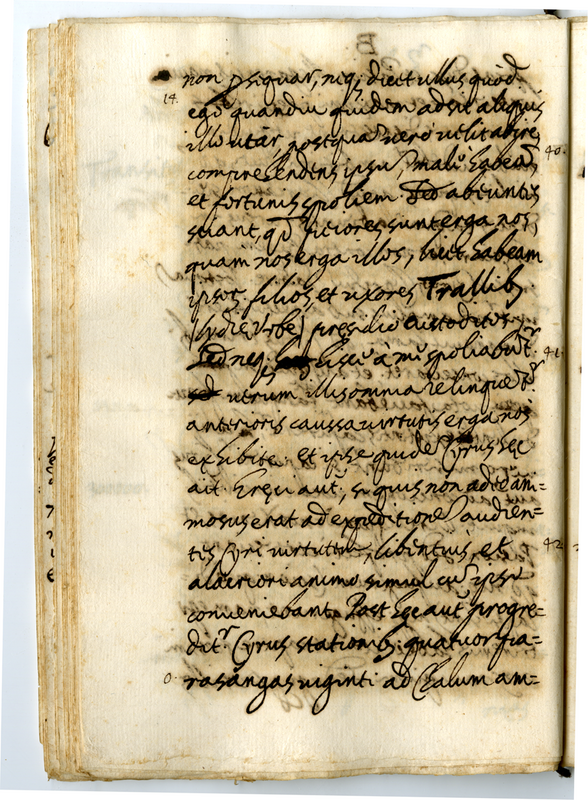 non psequar, neq; dicet ullus quòd
14.
ego quandiu quidem adsit aliquis
illo utar, postqua vero velit abire,
40.
comprehendens ipsu, male habea,
et fortunis spoliem. Sed abeuntes
sciant, qd peiores sunt erga nos,
quam nos erga illos, licet habeam
ipsor filios, et uxores Trallib
(Lydie Urbe) presidio custoditos
Sed neq hisce à me spoliabutr
41.
sed utrum illis omnia relinquetr
anterioris caussa virtutis erga nos
exhibite. et ipse quide Cyrus hec
ait. Greci aut, si quis non ad-
mosus erat ad expeditione audien=
tes Cyri virtutem, libentius, et
42.
alacriori animo simul cu ipso
conveniebant. Post hec aut progre=
ditr Cyrus stationib. quatuor pa=
rasangas viginti ad Chalum am=